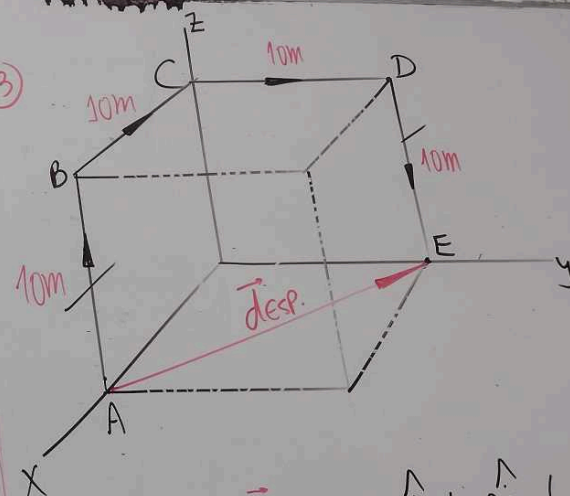 Z
C
10m
D
3
10m
B
10m
E
y
10m
desp.
A
X